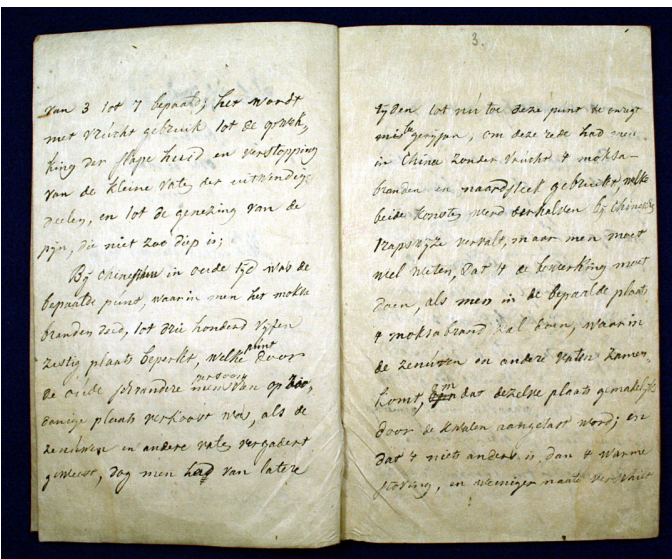 van 3 tot 7 bepaald; het wordt
met vrúcht gebruik tot de
king der slape heid en verstopping
van de kleine vaten der uitwendige
deelen, en tot de genezing van de
pijn, die niet zoo diep is;
Bij in oude tijd was de
bepaalde punt, waarin men het moksa
branden deed, tot drie honderd vijfen
zestig plaats beperkt, welke punt door
de oude schrandere men van op
danige plaats verkoost was, als de
zenúwen en andere vaten vergadert
geweest, dog men had van latere
3.
tijden tot nú toe deze punt de
om deze rede had men
in China zonder vrúcht 4 moksa-
branden en naardsteek gebruikt, welke
beide konsten werd derhalven bij
vervalt, maar men moet
wel weten, dat 4 de bewerking moet
doen, als men in de bepaalde plaats
4 moksabrand zal doen, waarin
de zenúwen en andere vaten zamen
komt, dat dezelve plaats gemakelijk
door de kwalen aangetast word; en
dat 4 niets anders is dan 4 warme
stoving, en weiniger naald